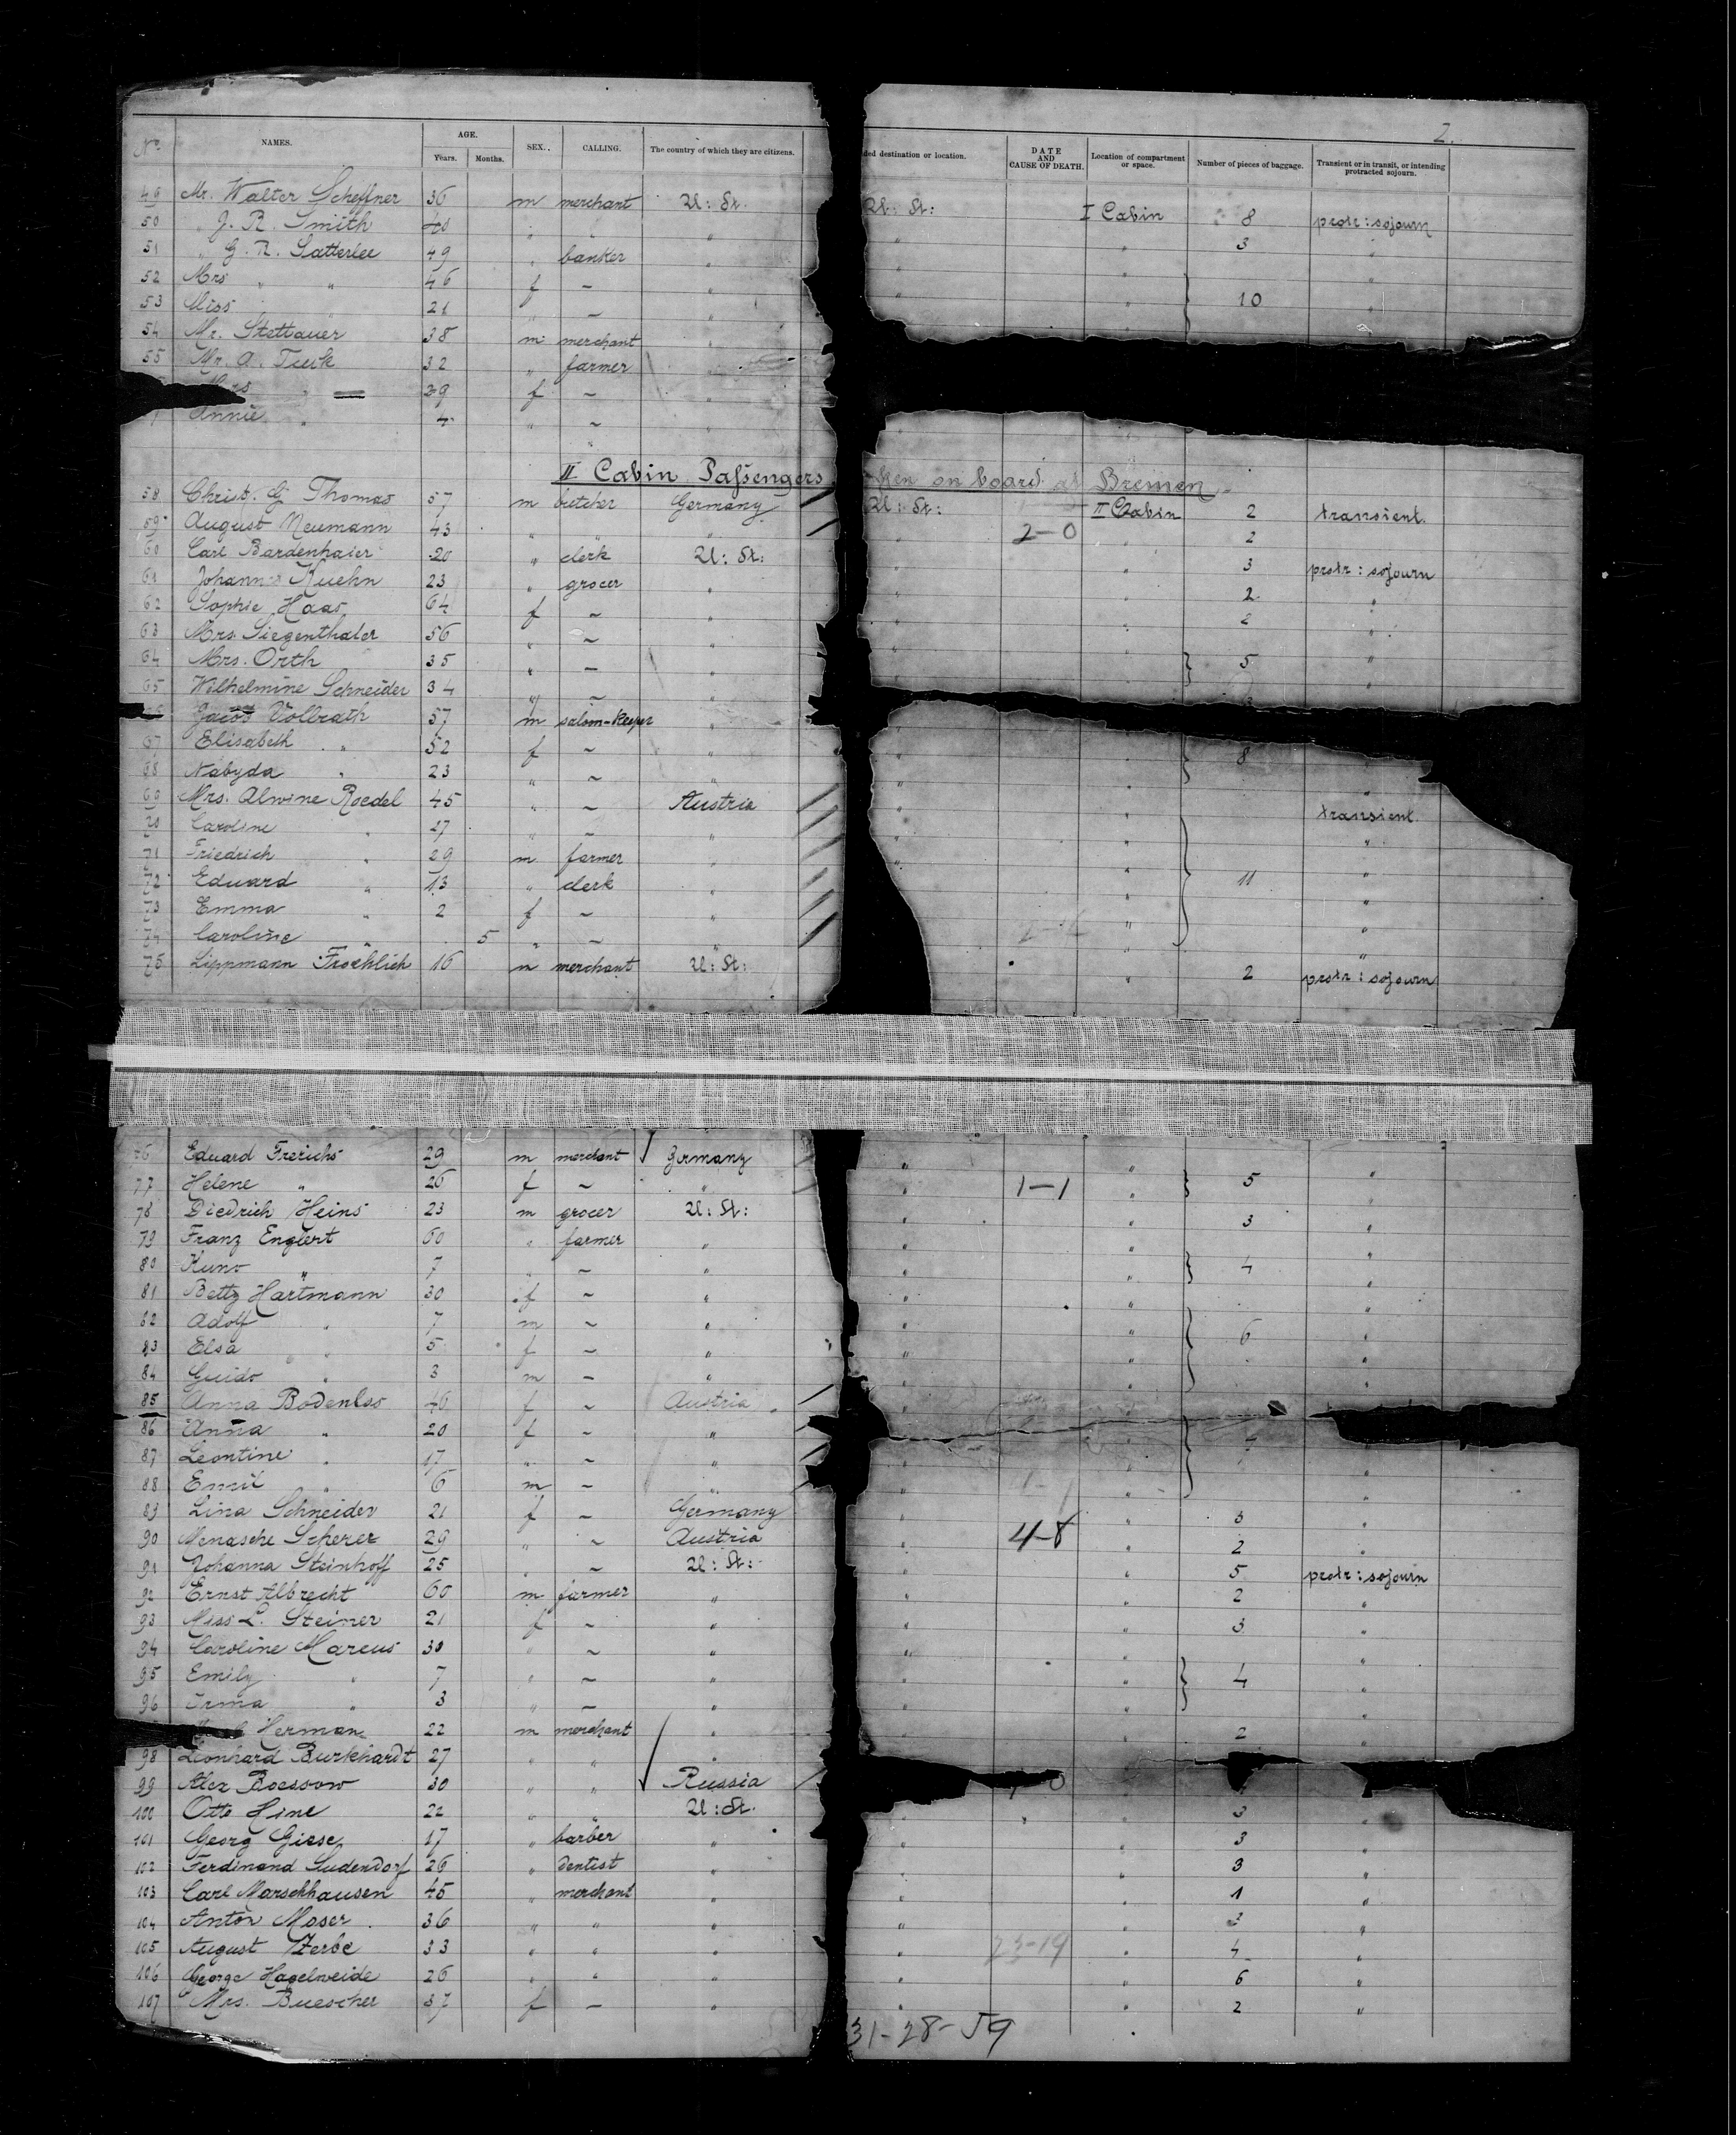 2.
No. NAMES. AGE. Years. Months. SEX. CALLING. The country of which they are citizens. ded destination or location. DATE AND CAUSE OF DEATH. Location of compartment or space. Number of pieces of baggage. Transient or in transit, or intending protracted sojourn.
49 Mr. Walter Scheffner 36 m merchant U: St. U: St: I Cabin 8 protr: sojourn
50 " J. R. Smith 40 " " " " " 3 "
51 " G. R. Satterlee 49 " banker " " "
52 Mrs " " 46 f ~ " " " } 10 "
53 Miss " " 21 " ~ "
54 Mr. Stettauer 38 m merchant "
55 Mr. A. Tuerk 32 " farmer "
Mrs " 29 f ~ "
Annie " 4 " ~ "
II Cabin Passengers ken on board at Bremen.
58 Christ. G Thomas 57 m butcher Germany U: St: II Cabin 2 transient.
59 August Neumann 43 " " " " 2-0 " 2
60 Carl Bardenhaier 20 " clerk U: St: " " 3 protr: sojourn
61 Johann Kuehn 23 " grocer " " " 2 "
62 Sophie Haas 64 f ~ " " " 2 "
63 Mrs. Siegenthaler 56 " ~ " " " } 5 "
64 Mrs. Orth 35 " ~ " " " "
65 Wilhelmine Schneider 34 " ~ " 3
Jacob Volbrath 57 m saloon-keeper " "
67 Elisabeth " 52 f ~ " " " } 8
68 Nabyda " 23 " ~ " " " "
69 Mrs. Alwine Roedel 45 " ~ Austria " " transient.
70 Caroline " 27 " ~ " " " "
71 Friedrich " 29 m farmer " " " } 11 "
72 Eduard " 13 " clerk " " "
73 Emma " 2 f ~ " " "
74 Caroline " 5 " ~ " " "
75 Lippmann Froehlich 16 m merchant U: St: " 2 protr: sojourn
76 Eduard Frerichs 29 m merchant Germany " " } 5 "
77 Helene " 26 f ~ " " 1-1 " "
78 Diedrich Heins 23 m grocer U: St: " " 3 "
79 Franz Englert 60 " farmer " " " } 4 "
80 Kuno " 7 " ~ " " " "
81 Betty Hartmann 30 f ~ " " " "
82 Adolf " 7 m ~ " " " } 6 "
83 Elsa " 5 f ~ " " " "
84 Guido " 3 m ~ " " "
85 Anna Bodenlos 46 f ~ Austria "
86 Anna " 20 f ~ " " }
87 Leontine " 17 " ~ " " " "
88 Emil " 6 m ~ " " " "
89 Lina Schneider 21 f ~ Germany " " 3 "
90 Menasche Scherer 29 " ~ Austria " 4-8 " 2 "
91 Johanna Steinhoff 25 " ~ U: St: " " 5 protr: sojourn
92 Ernst Albrecht 60 m farmer " " " 2 "
93 Miss L. Steiner 21 f ~ " " " 3 "
94 Caroline Marcus 30 " ~ " " " "
95 Emily " 7 " ~ " " " } 4 "
96 Irma " 3 " ~ " " " "
Herman 22 m merchant " " " 2 "
98 Leonhard Burkhardt 27 " " "
99 Alex Boessow 30 " " Russia
100 Otto Hine 22 " " U: St. " " 3 "
101 Georg Giese 17 " barber " " " 3 "
102 Ferdinand Ludendorf 26 " dentist " " " 3 "
103 Carl Marschhausen 45 " merchant " " " 1 "
104 Anton Moser 36 " " " " " 3 "
105 August Zerbe 33 " " " " 23-19 " 4 "
106 George Hagelweide 26 " " " " " 6 "
107 Mrs. Buescher 37 f — " " " 2 "
31-28-59